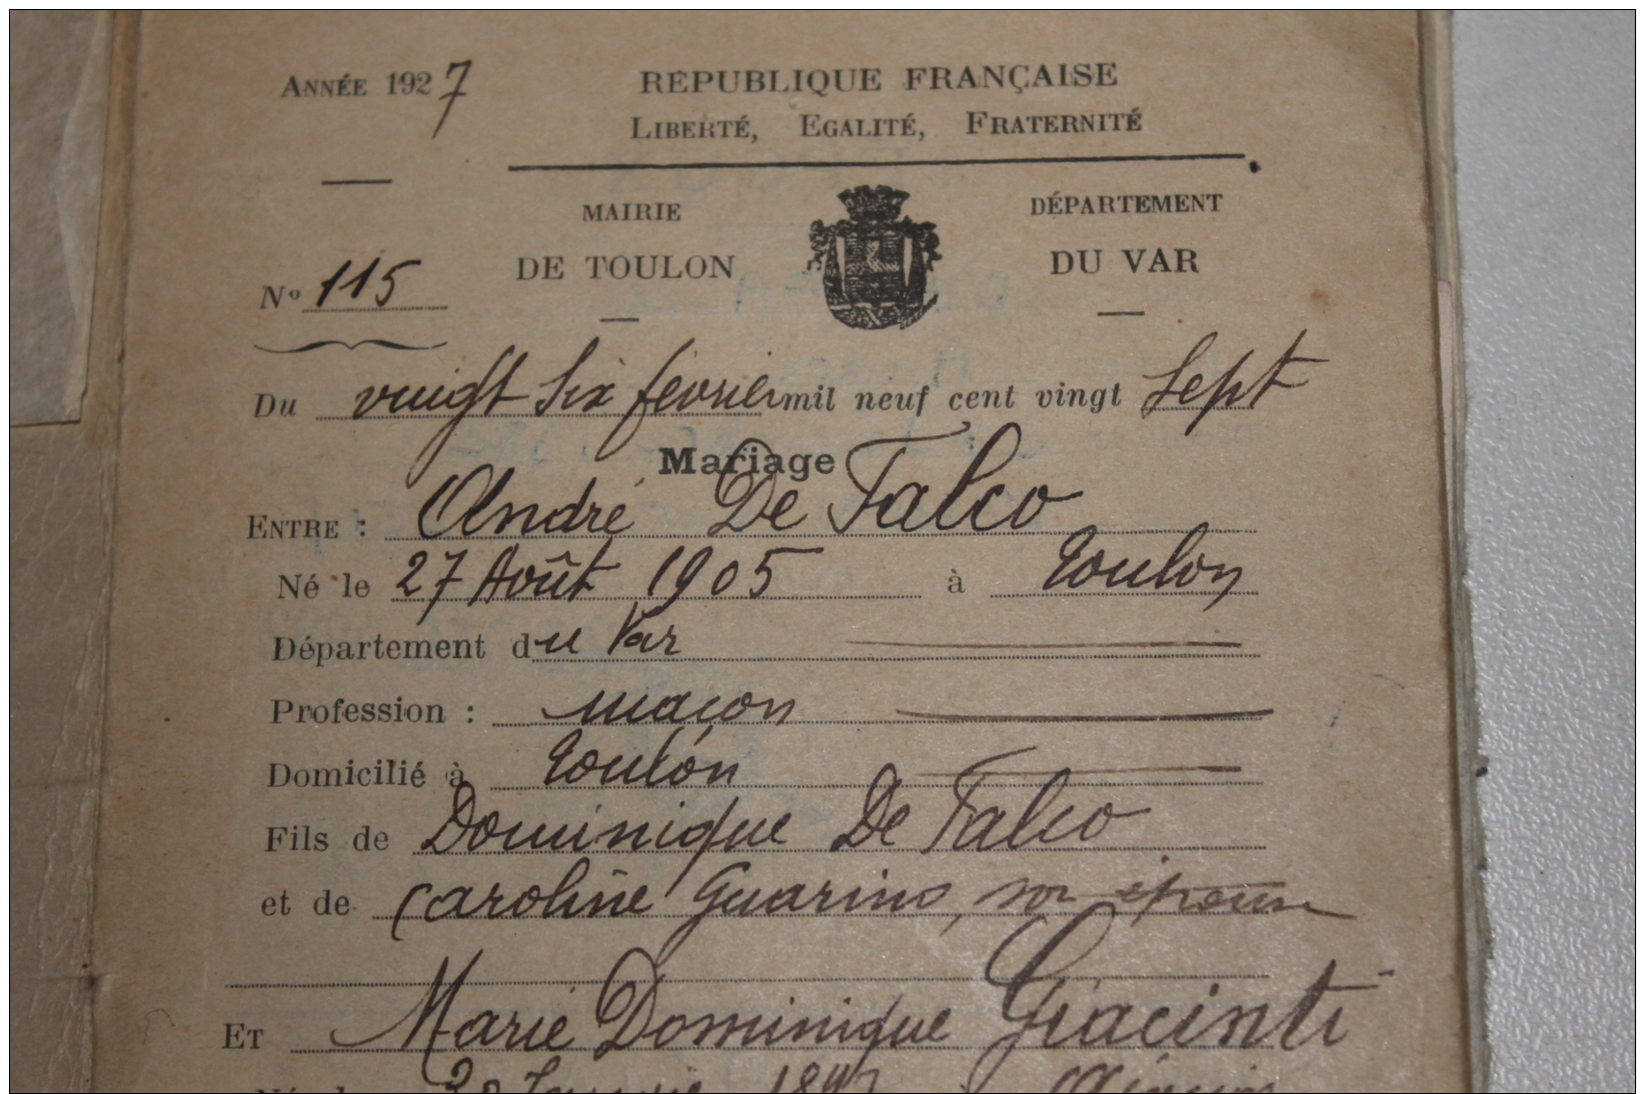 ANNÉE 1927
RÉPUBLIQUE FRANÇAISE
LIBERTÉ, EGALITÉ, FRATERNITÉ
MAIRIE
DE TOULON
DÉPARTEMENT
DU VAR
No 115
Du vingt six février mil neuf cent vingt sept
Mariage
ENTRE : André De Falco
Né le 27 Août 1905 à Toulon
Département du Var
Profession : maçon
Domicilié à Toulon
Fils de Dominique De Falco
et de Caroline Guarino, son épouse
ET Marie Dominique Giacinti